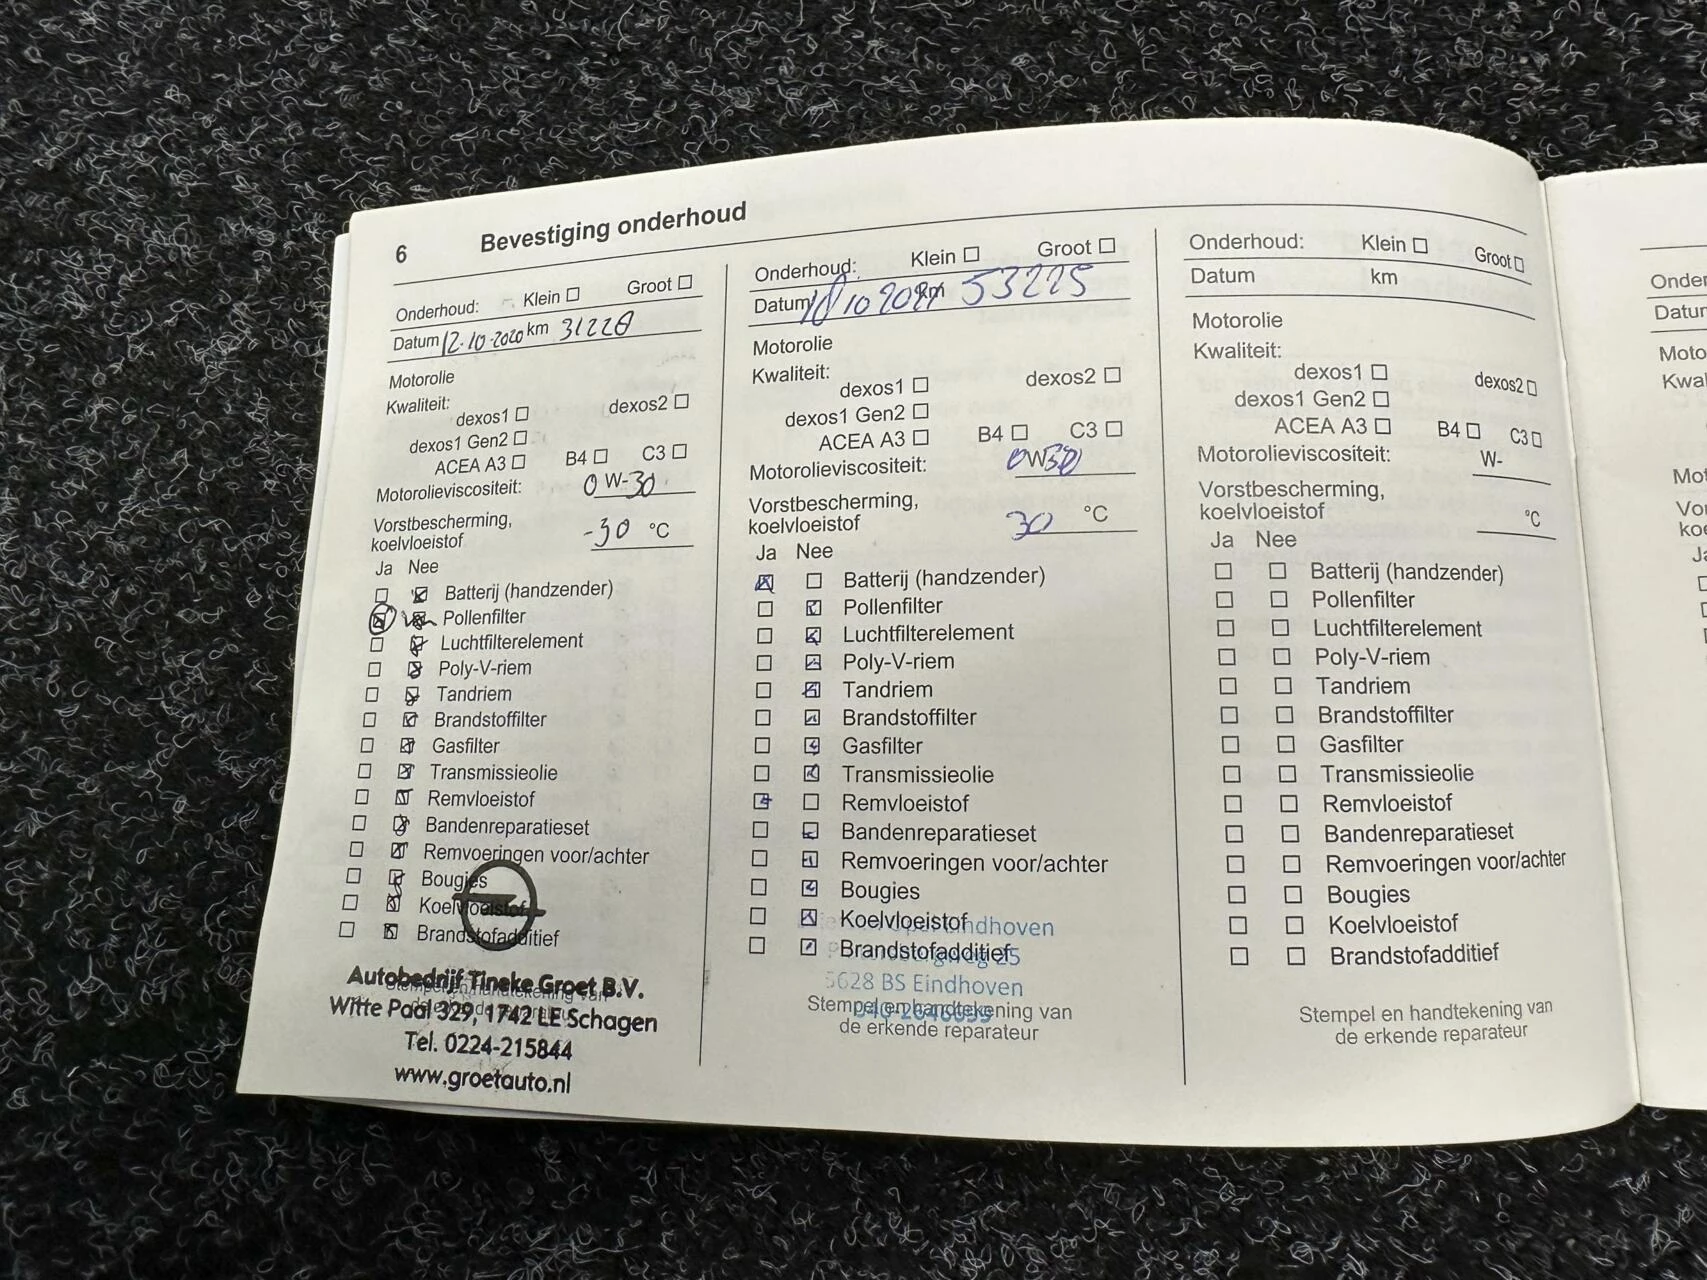 6 Bevestiging onderhoud
Onderhoud: Klein ☐ Groot ☐
Datum 12-10-2020 km 31228
Motorolie
Kwaliteit:
dexos1 ☐ dexos2 ☐
dexos1 Gen2 ☐
ACEA A3 ☐ B4 ☐ C3 ☐
Motorolieviscositeit: 0 W-30
Vorstbescherming,
koelvloeistof -30 °C
Ja Nee
☐ ☒ Batterij (handzender)
☒ ☒ Pollenfilter
☐ ☒ Luchtfilterelement
☐ ☒ Poly-V-riem
☐ ☒ Tandriem
☐ ☒ Brandstoffilter
☐ ☒ Gasfilter
☐ ☒ Transmissieolie
☐ ☒ Remvloeistof
☐ ☒ Bandenreparatieset
☐ ☒ Remvoeringen voor/achter
☐ ☒ Bougies
☐ ☒ Koelvloeistof
☐ ☒ Brandstofadditief
Stempel en handtekening van
de erkende reparateur
Autobedrijf Tineke Groet B.V.
Witte Paal 329, 1742 LE Schagen
Tel. 0224-215844
www.groetauto.nl
Onderhoud: Klein ☐ Groot ☐
Datum 18 10 2021 km 53225
Motorolie
Kwaliteit:
dexos1 ☐ dexos2 ☐
dexos1 Gen2 ☐
ACEA A3 ☐ B4 ☐ C3 ☐
Motorolieviscositeit: 0 W-30
Vorstbescherming,
koelvloeistof 30 °C
Ja Nee
☒ ☐ Batterij (handzender)
☐ ☒ Pollenfilter
☐ ☒ Luchtfilterelement
☐ ☒ Poly-V-riem
☐ ☒ Tandriem
☐ ☒ Brandstoffilter
☐ ☒ Gasfilter
☐ ☒ Transmissieolie
☒ ☐ Remvloeistof
☐ ☒ Bandenreparatieset
☐ ☒ Remvoeringen voor/achter
☐ ☒ Bougies
☐ ☒ Koelvloeistof
☐ ☒ Brandstofadditief
Opel Eindhoven
25
5628 BS Eindhoven
Stempel en handtekening van
de erkende reparateur
Onderhoud: Klein ☐ Groot ☐
Datum km
Motorolie
Kwaliteit:
dexos1 ☐ dexos2 ☐
dexos1 Gen2 ☐
ACEA A3 ☐ B4 ☐ C3 ☐
Motorolieviscositeit: W-
Vorstbescherming,
koelvloeistof °C
Ja Nee
☐ ☐ Batterij (handzender)
☐ ☐ Pollenfilter
☐ ☐ Luchtfilterelement
☐ ☐ Poly-V-riem
☐ ☐ Tandriem
☐ ☐ Brandstoffilter
☐ ☐ Gasfilter
☐ ☐ Transmissieolie
☐ ☐ Remvloeistof
☐ ☐ Bandenreparatieset
☐ ☐ Remvoeringen voor/achter
☐ ☐ Bougies
☐ ☐ Koelvloeistof
☐ ☐ Brandstofadditief
Stempel en handtekening van
de erkende reparateur